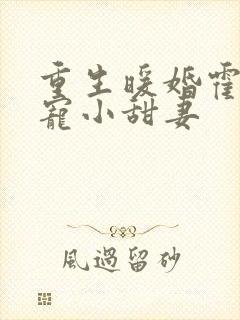 重生暖婚霍
寵小甜妻
風過留砂